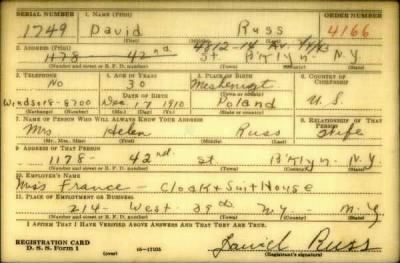 SERIAL NUMBER 1. NAME (Print) ORDER NUMBER
1749 David Russ 4166
(First) (Middle) (Last)
2. ADDRESS (Print) 4812-14 Av.
1178 - 42nd St B'klyn. N.Y.
(Number and street or R. F. D. number) (Town) (County) (State)
3. TELEPHONE 4. AGE IN YEARS 5. PLACE OF BIRTH 6. COUNTRY OF CITIZENSHIP
No 30
DATE OF BIRTH
Windsor 8-8700 Dec. 17 1910 Poland U.S.
(Exchange) (Number) (Mo.) (Day) (Yr.) (State or country)
7. NAME OF PERSON WHO WILL ALWAYS KNOW YOUR ADDRESS 8. RELATIONSHIP OF THAT PERSON
Mrs Helen Russ Wife
(Mr., Mrs., Miss) (First) (Middle) (Last)
9. ADDRESS OF THAT PERSON
1178 - 42nd St. B'klyn N.Y.
(Number and street or R. F. D. number) (Town) (County) (State)
10. EMPLOYER'S NAME
Miss France - Cloak & Suit House
11. PLACE OF EMPLOYMENT OR BUSINESS
214 - West 39th N.Y. - N.Y
(Number and street or R. F. D. number) (Town) (County) (State)
I AFFIRM THAT I HAVE VERIFIED ABOVE ANSWERS AND THAT THEY ARE TRUE.
REGISTRATION CARD
D. S. S. Form 1 (over) 16-17105 David Russ
(Registrant's signature)